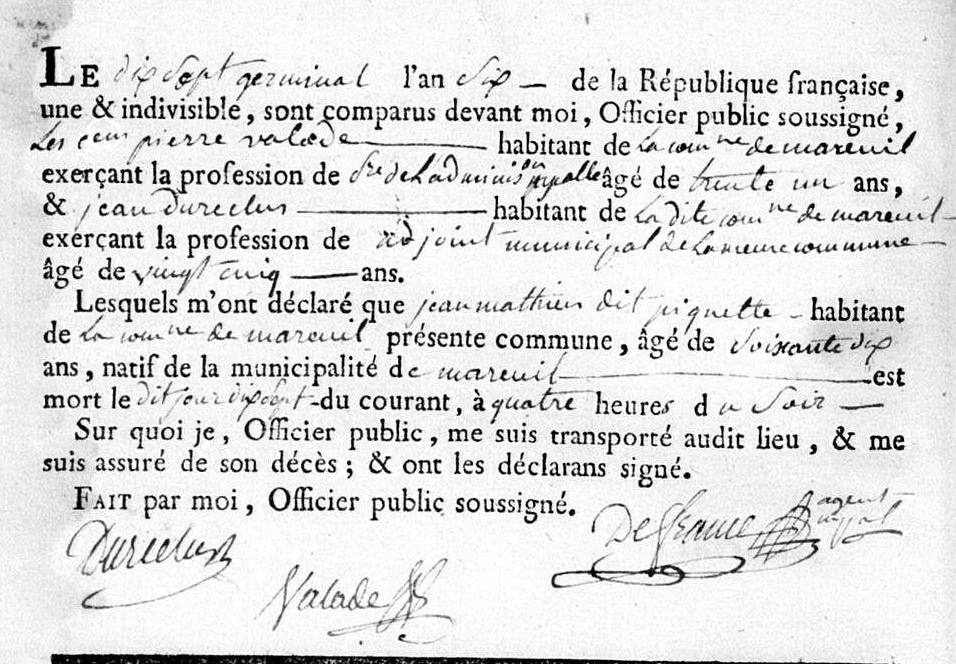 LE dix sept germinal l'an six — de la République française,
une & indivisible, sont comparus devant moi, Officier public soussigné,
Les pierre valade habitant de la comne de mareuil
exerçant la profession de Sre de Ladminison mpalle âgé de trente un ans,
& jean Dureclus habitant de La dite comne de mareuil
exerçant la profession de adjoint municipal de La meme commune
âgé de vingt cinq ans.
Lesquels m'ont déclaré que jean mathieu dit piquette habitant
de La comne de mareuil présente commune, âgé de soixante dix
ans, natif de la municipalité de mareuil est
mort le dit jour dix sept du courant, à quatre heures du soir —
Sur quoi je, Officier public, me suis transporté audit lieu, & me
suis assuré de son décès; & ont les déclarans signé.
FAIT par moi, Officier public soussigné.
agent
Dureclus mpal
Valade